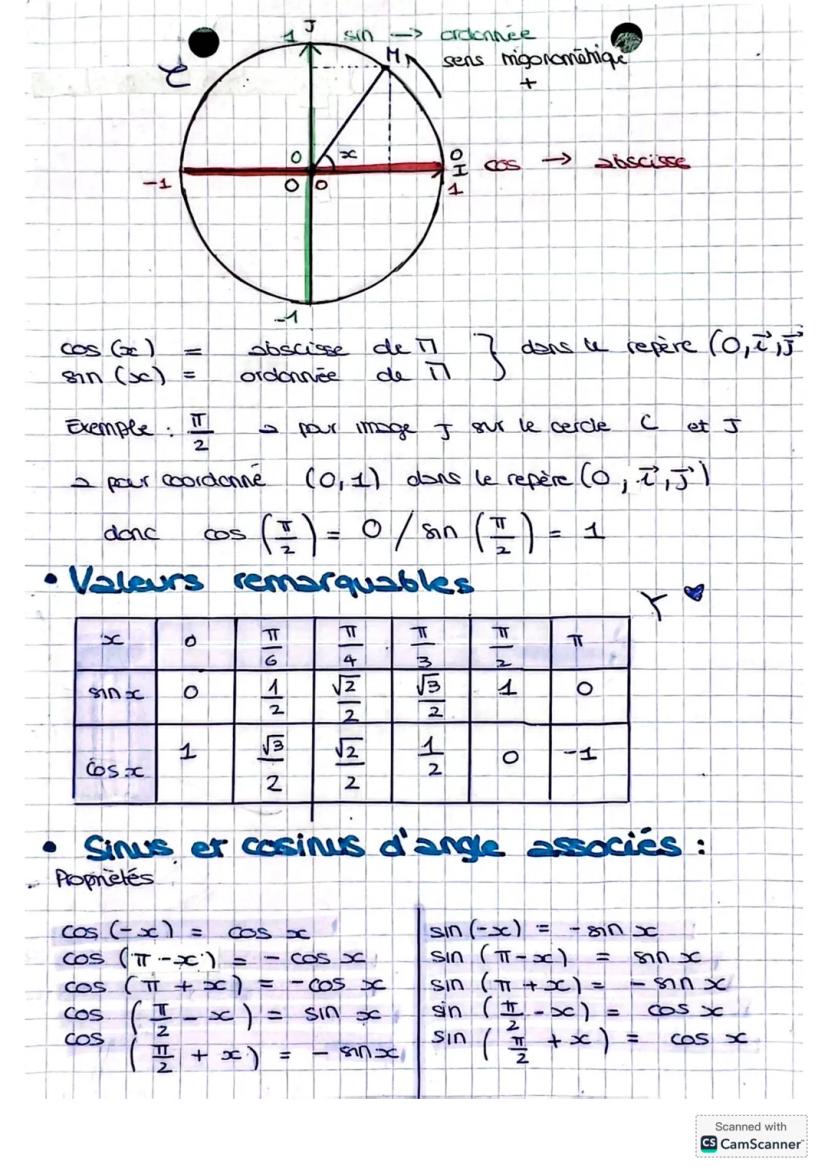 1 J sin → ordonnée
C M sens trigonométrique
+
0 x 0
-1 I cos → abscisse
0 0 1
-1
cos (x) = abscisse de M } dans le repère (O, i⃗, j⃗
sin (x) = ordonnée de M
Exemple : π/2 → pour image J sur le cercle C et J
→ pour coordonné (0,1) dans le repère (O, i⃗, j⃗)
donc cos (π/2) = 0 / sin (π/2) = 1
• Valeurs remarquables
x 0 π/6 π/4 π/3 π/2 π
sin x 0 1/2 √2/2 √3/2 1 0
cos x 1 √3/2 √2/2 1/2 0 -1
• Sinus et cosinus d'angle associés :
Propriétés
cos (-x) = cos x
cos (π - x) = - cos x
cos (π + x) = -cos x
cos (π/2 - x) = sin x
cos (π/2 + x) = - sin x
sin (-x) = - sin x
sin (π - x) = sin x
sin (π + x) = - sin x
sin (π/2 - x) = cos x
sin (π/2 + x) = cos x
Scanned with
CS CamScanner